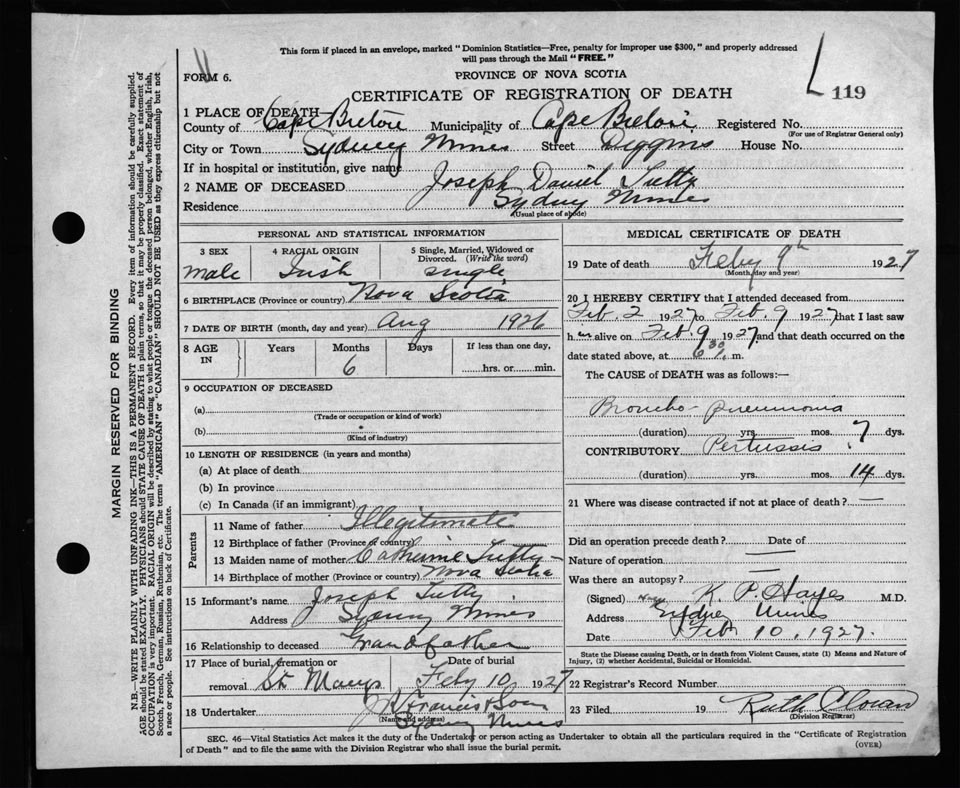 This form if placed in an envelope, marked "Dominion Statistics—Free, penalty for improper use $300," and properly addressed
will pass through the Mail "FREE."
FORM 6.
PROVINCE OF NOVA SCOTIA
CERTIFICATE OF REGISTRATION OF DEATH
119
1 PLACE OF DEATH
County of Cape Breton Municipality of Cape Breton Registered No.
(For use of Registrar General only)
City or Town Sydney Mines Street Deggins House No.
If in hospital or institution, give name
2 NAME OF DECEASED Joseph Daniel Tutty
Residence Sydney Mines
(Usual place of abode)
PERSONAL AND STATISTICAL INFORMATION
3 SEX
male
4 RACIAL ORIGIN
Irish
5 Single, Married, Widowed or
Divorced. (Write the word)
single
6 BIRTHPLACE (Province or country) Nova Scotia
7 DATE OF BIRTH (month, day and year) Aug 1926
8 AGE IN
Years
Months
6
Days
If less than one day,
hrs. or min.
9 OCCUPATION OF DECEASED
(a)
(Trade or occupation or kind of work)
(b)
(Kind of industry)
10 LENGTH OF RESIDENCE (in years and months)
(a) At place of death
(b) In province
(c) In Canada (if an immigrant)
Parents
11 Name of father Illegitimate
12 Birthplace of father (Province or country)
13 Maiden name of mother Catherine Tutty
14 Birthplace of mother (Province or country) Nova Scotia
15 Informant's name Joseph Tutty
Address Sydney Mines
16 Relationship to deceased Grandfather
17 Place of burial, cremation or
removal St Marys
Date of burial
Feby 10 1927
18 Undertaker J W Francis & Son
(Name and address)
Sydney Mines
MEDICAL CERTIFICATE OF DEATH
19 Date of death Feby 9th 1927
(Month, day and year)
20 I HEREBY CERTIFY that I attended deceased from
Feb. 2 1927 to Feb. 9 1927 that I last saw
h im alive on Feb. 9 1927 and that death occurred on the
date stated above, at 6 30 m.
The CAUSE of DEATH was as follows:—
Broncho-pneumonia
(duration) yrs. mos. 7 dys.
CONTRIBUTORY Pertussis
(duration) yrs. mos. 14 dys.
21 Where was disease contracted if not at place of death?
Did an operation precede death? Date of
Nature of operation
Was there an autopsy?
(Signed) K. P. Hayes M.D.
Address Sydney Mines
Date Feb 10, 1927.
State the Disease causing Death, or in death from Violent Causes, state (1) Means and Nature of
Injury, (2) whether Accidental, Suicidal or Homicidal.
22 Registrar's Record Number
23 Filed 19 Ruth Cloran
(Division Registrar)
SEC. 46—Vital Statistics Act makes it the duty of the Undertaker or person acting as Undertaker to obtain all the particulars required in the "Certificate of Registration
of Death" and to file the same with the Division Registrar who shall issue the burial permit.
(OVER)
MARGIN RESERVED FOR BINDING
N.B.—WRITE PLAINLY WITH UNFADING INK—THIS IS A PERMANENT RECORD. Every item of information should be carefully supplied.
AGE should be stated EXACTLY. PHYSICIANS should STATE CAUSE OF DEATH in plain terms, so that it may be properly classified. Exact statement of
OCCUPATION is very important. RACIAL ORIGIN will be described by stating to what people or tongue the deceased person belonged, whether English, Irish,
Scotch, French, German, Russian, Ruthenian, etc. The terms "AMERICAN" or "CANADIAN" SHOULD NOT BE USED as they express citizenship but not
a race or people. See instructions on back of Certificate.